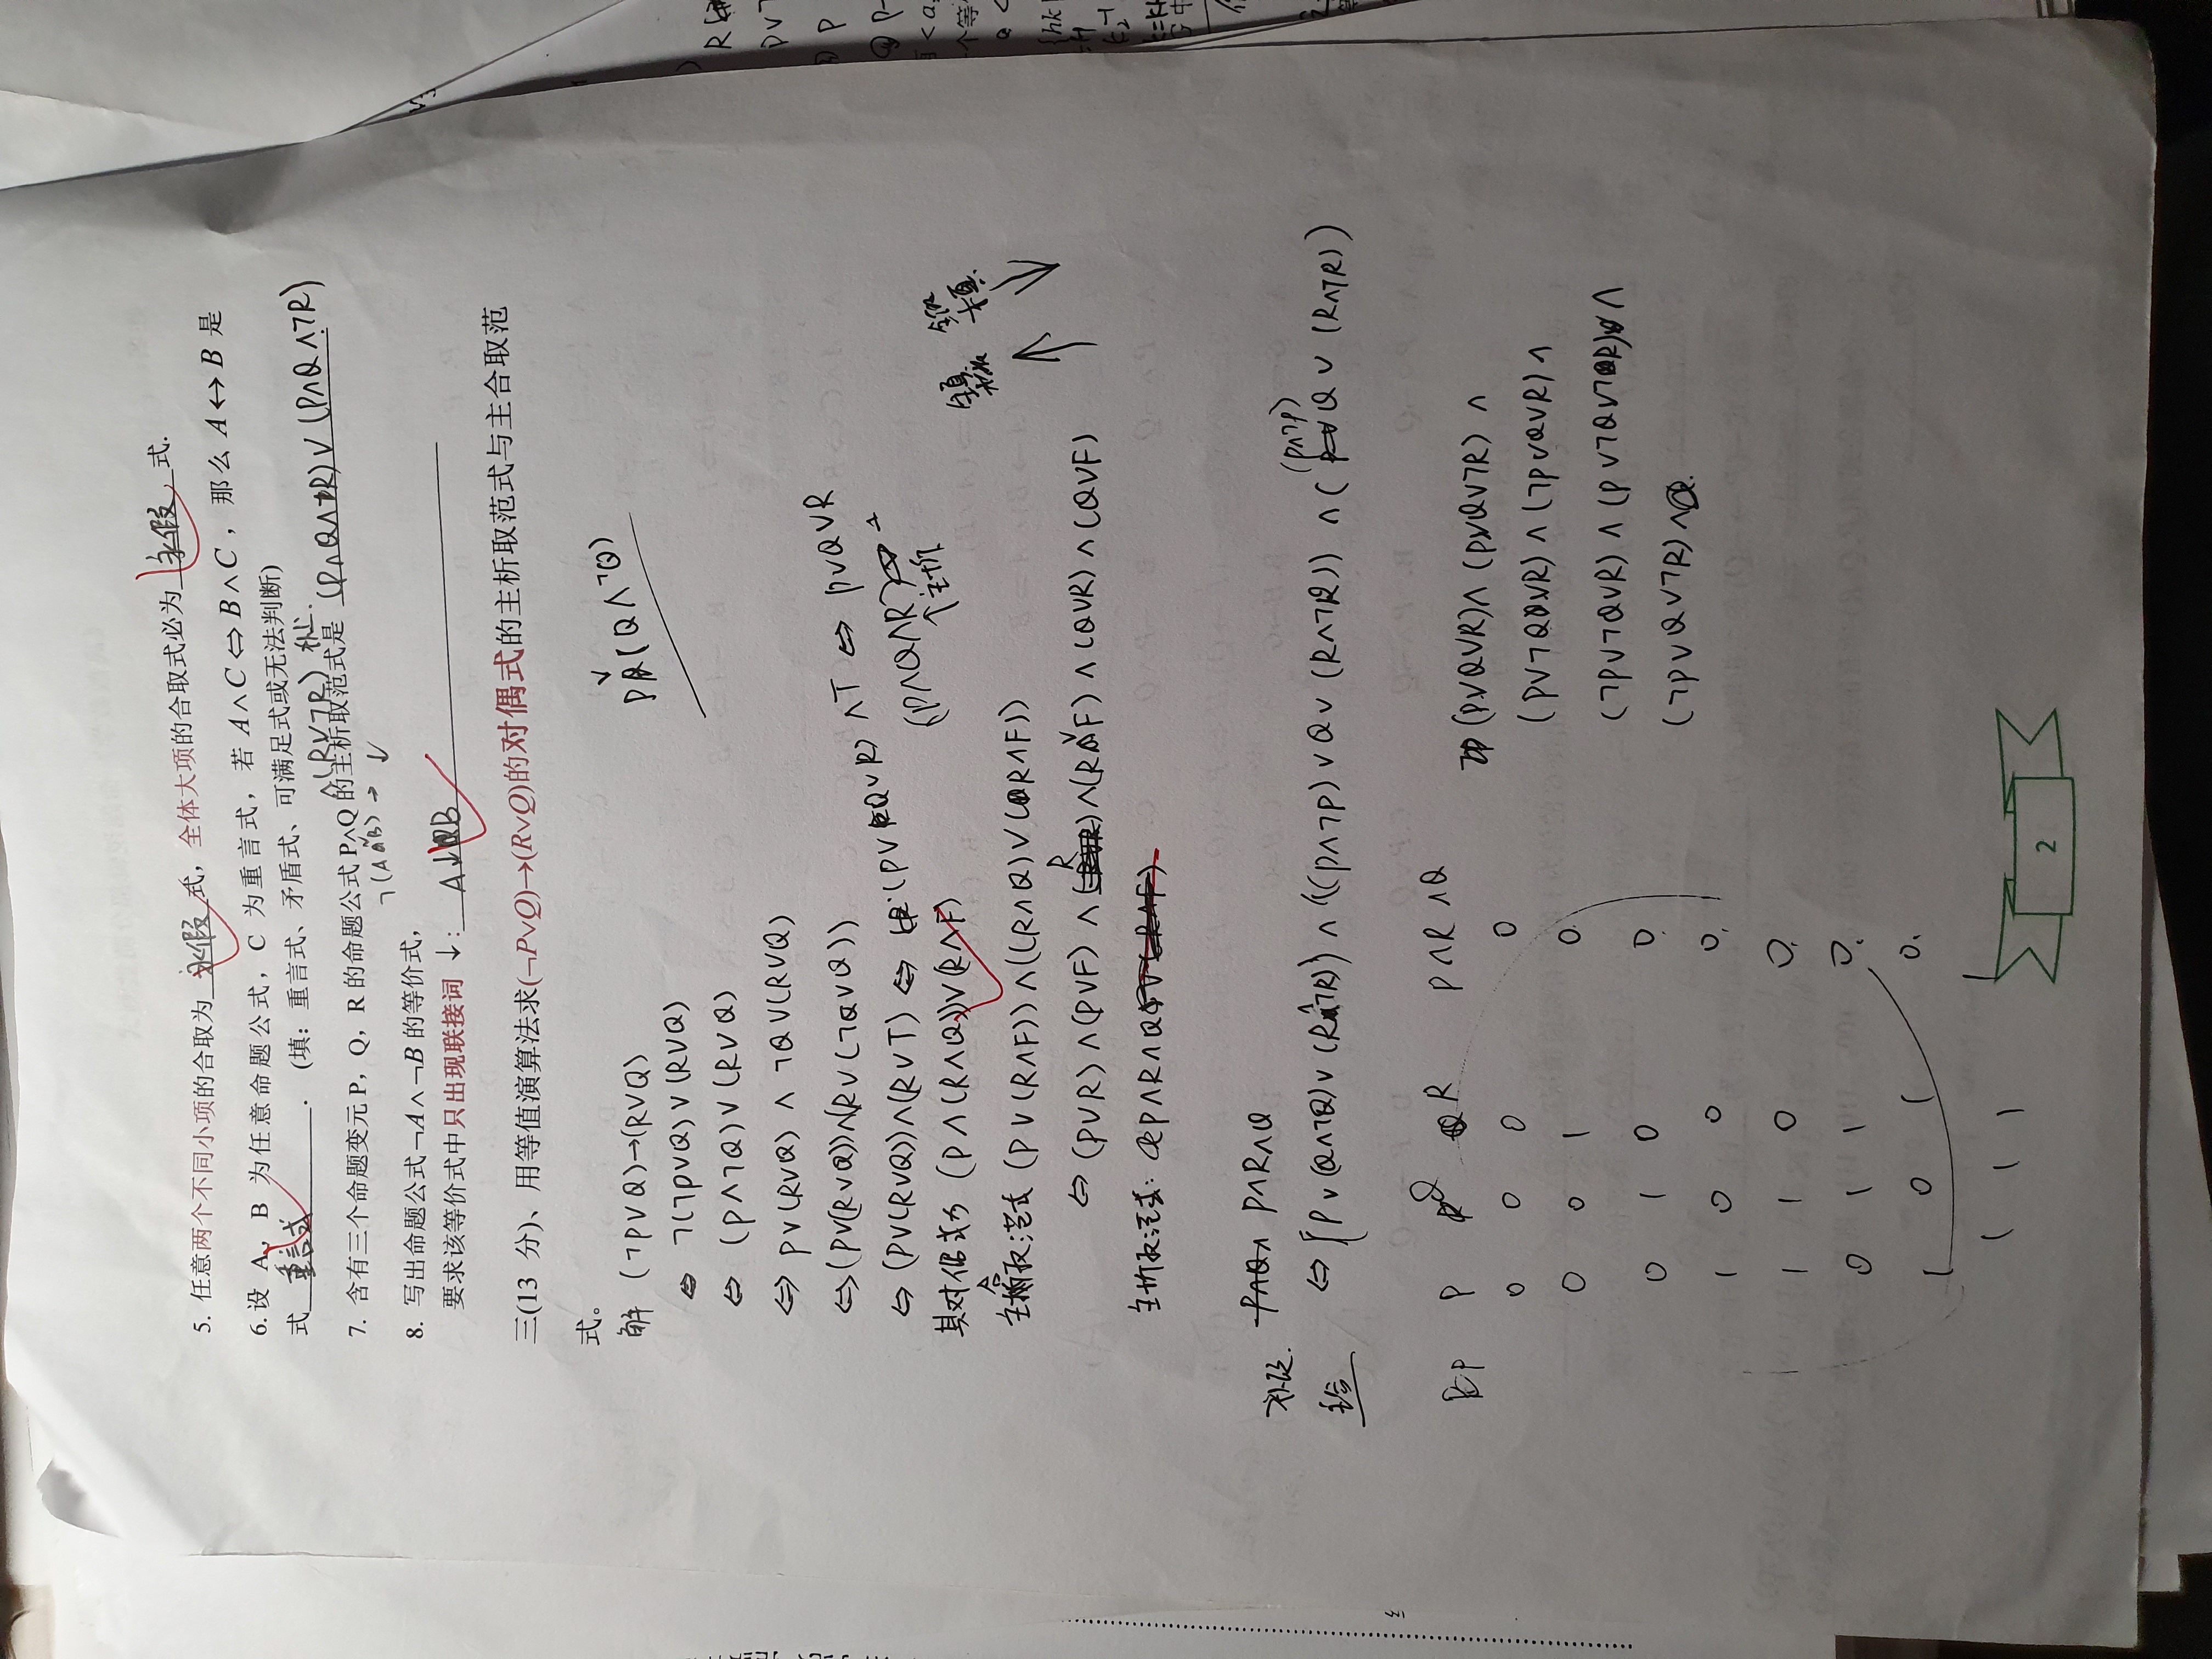 5. 任意两个不同小项的合取为 永假 式，全体大项的合取式必为 永假 式.
6.设 A，B 为任意命题公式，C 为重言式，若 A∧C⇔B∧C ，那么 A↔B 是
式 重言式 . (填：重言式、矛盾式、可满足式或无法判断)
∧(R∨¬R)
7. 含有三个命题变元 P，Q，R 的命题公式 P∧Q 的主析取范式是 (P∧Q∧R)∨(P∧Q∧¬R)
8. 写出命题公式¬A∧¬B 的等价式，
要求该等价式中只出现联接词 ↓: A↓B
三(13 分)、用等值演算法求(¬P∨Q)→(R∨Q)的对偶式的主析取范式与主合取范
式。
P∨(Q∧¬Q)
解 (¬P∨Q)→(R∨Q)
⇔ ¬(¬P∨Q)∨(R∨Q)
⇔ (P∧¬Q)∨(R∨Q)
⇔ P∨(R∨Q) ∧ ¬Q∨(R∨Q)
⇔(P∨(R∨Q))∧(R∨(¬Q∨Q))
⇔ (P∨(R∨Q))∧(R∨T) ⇔ (P∨Q∨R) ∧T ⇔ P∨Q∨R
(P∧Q∧R)
↑主析
其对偶式为 (P∧(R∧Q))∨(R∧F)
主合取范式 (P∨(R∧F))∧((R∧Q)∨(R∧F))
⇔ (P∨R)∧(P∨F) ∧ R ∧(R∨F)∧(Q∨R)∧(Q∨F)
主析取范式: P∧R∧Q
P∧Q∧ P∧R∧Q
主合 ⇔ (P∨(Q∧¬Q)∨(R∧¬R))∧((P∧¬P)∨Q∨(R∧¬R))∧((P∧¬P) Q∨(R∧¬R))
P Q R P∧R∧Q
0 0 0 0
0 0 1 0
0 1 0 0
1 0 0 0
1 1 0 0
0 1 1 0
1 0 1 0
1 1 1 1
(P∨Q∨R)∧(P∨Q∨¬R)∧
(P∨¬Q∨R)∧(¬P∨Q∨R)∧
(¬P∨¬Q∨R)∧(P∨¬Q∨¬R)∧
(¬P∨Q∨¬R)∧
2